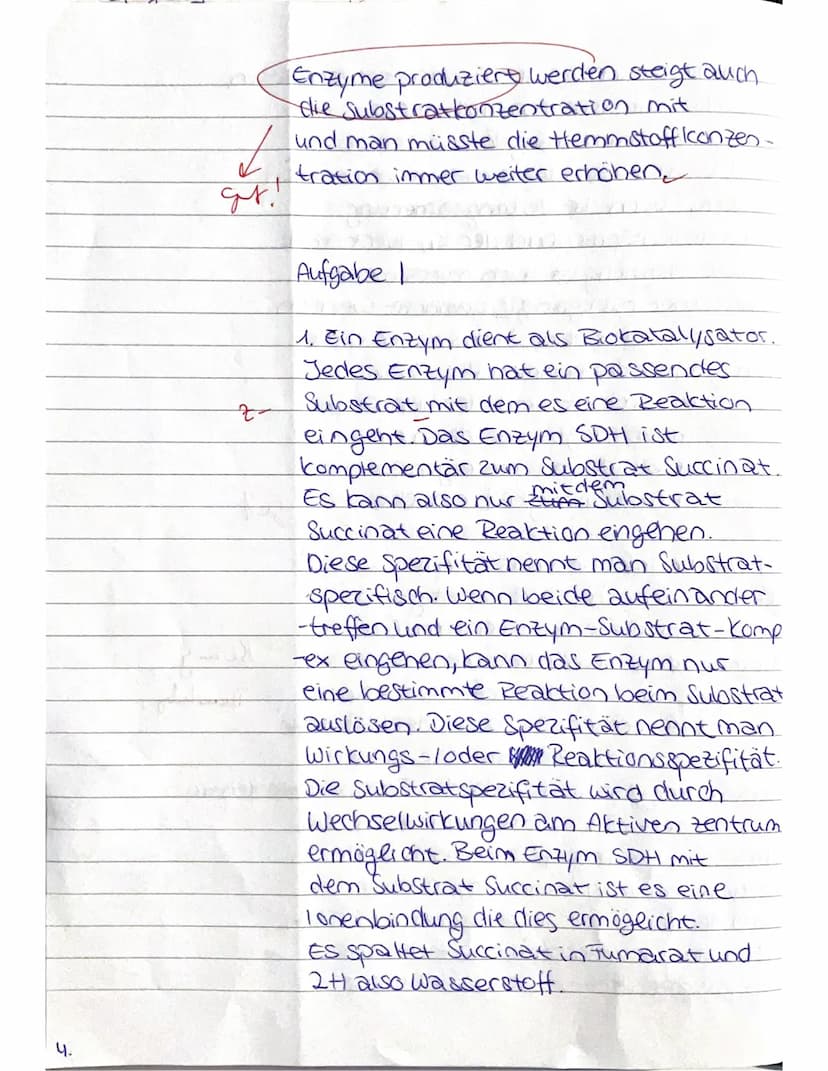 Enzyme produziert werden steigt auch
die Substratkonzentration mit
und man müsste die Hemmstoffkonzen-
tration immer weiter erhöhen.
gut!
Aufgabe 1
1. Ein Enzym dient als Biokatalysator.
Jedes Enzym hat ein passendes
Z-
Substrat mit dem es eine Reaktion
eingeht. Das Enzym SDH ist
komplementär zum Substrat Succinat.
mit dem
Es kann also nur zum Substrat
Succinat eine Reaktion engehen.
Diese Spezifität nennt man Substrat-
spezifisch. Wenn beide aufeinander
-treffen und ein Enzym-Substrat-Komp
-ex eingehen, kann das Enzym nur
eine bestimmte Reaktion beim Substrat
auslösen. Diese Spezifität nennt man
Wirkungs-/oder Reaktionsspezifität.
Die Substratspezifität wird durch
Wechselwirkungen am Aktiven zentrum
ermöglicht. Beim Enzym SDH mit
dem Substrat Succinat ist es eine
Ionenbindung die dies ermögeicht.
Es spaltet Succinat in Fumarat und
2H also Wasserstoff.
4.